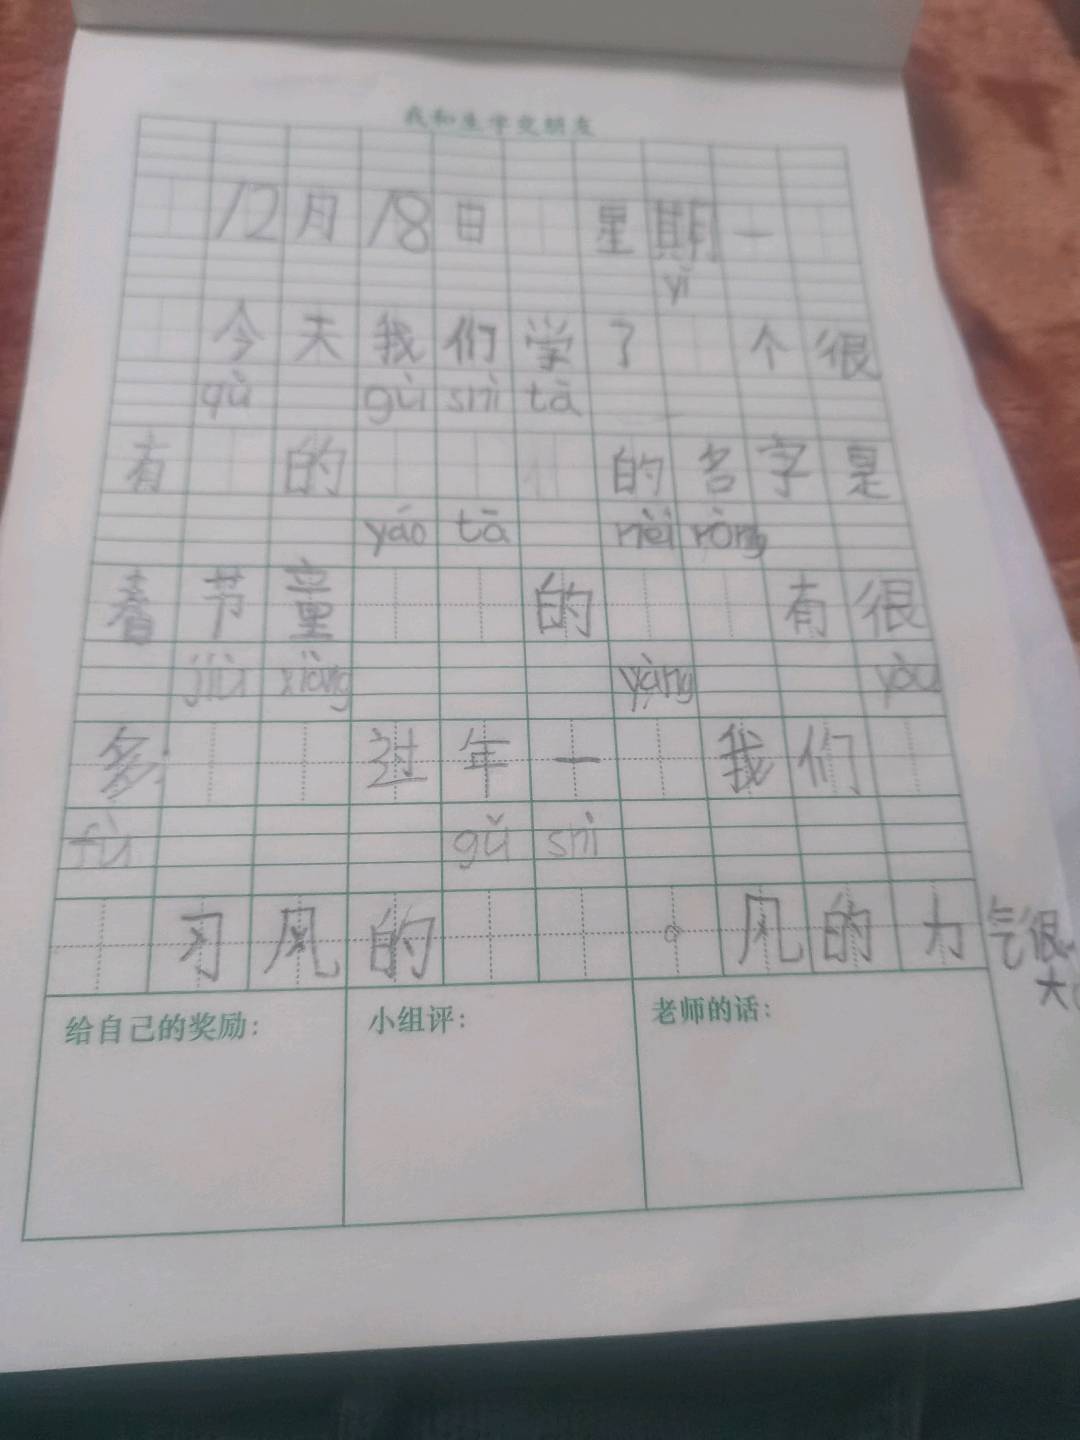 我和生字交朋友
12月18日 星期一
yǐ
今天我们学了 个很
qù gù shì tā
有 的 的名字是
yáo tā nèi róng
春节童 的 有很
jiù xiàng yàng yòu
多 过年一 我们
fù gǔ shi
习风的 。风的力气很大
给自己的奖励: 小组评: 老师的话: